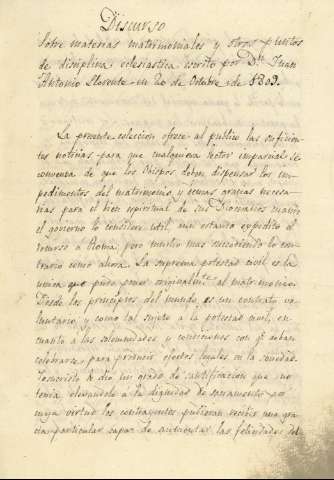 Discurso
Sobre materias matrimoniales y otros puntos
de disciplina eclesiastica escrito por Dn. Juan
Antonio Llorente en 20 de Octubre de 1809.
La presente coleccion ofrece al publico las suficien-
tes noticias para que cualquiera lector imparcial se
convenza de que los Obispos deben dispensar los im-
pedimentos del matrimonio y demas gracias necesa-
rias para el bien espiritual de sus Diocesanos cuando
el govierno lo considere util, aun estando expedito el
recurso a Roma pero mucho mas sucediendo lo con-
trario como ahora. La suprema potestad civil es la
unica que pudo poner originalmte. al matrimonio.
Desde los principios del mundo es un contrato vo-
luntario, y como tal sugeto a la potestad civil, en
cuanto a las solemnidades y condiciones con q.
celebrarse para producir efectos legales en la sociedad.
Jesucristo le dio un grado de santificacion que no
tenia elevandole a la dignidad de sacramento por
cuya virtud los contrayentes pudieran recibir una gra-
cia particular capaz de aumentar las felicidades del